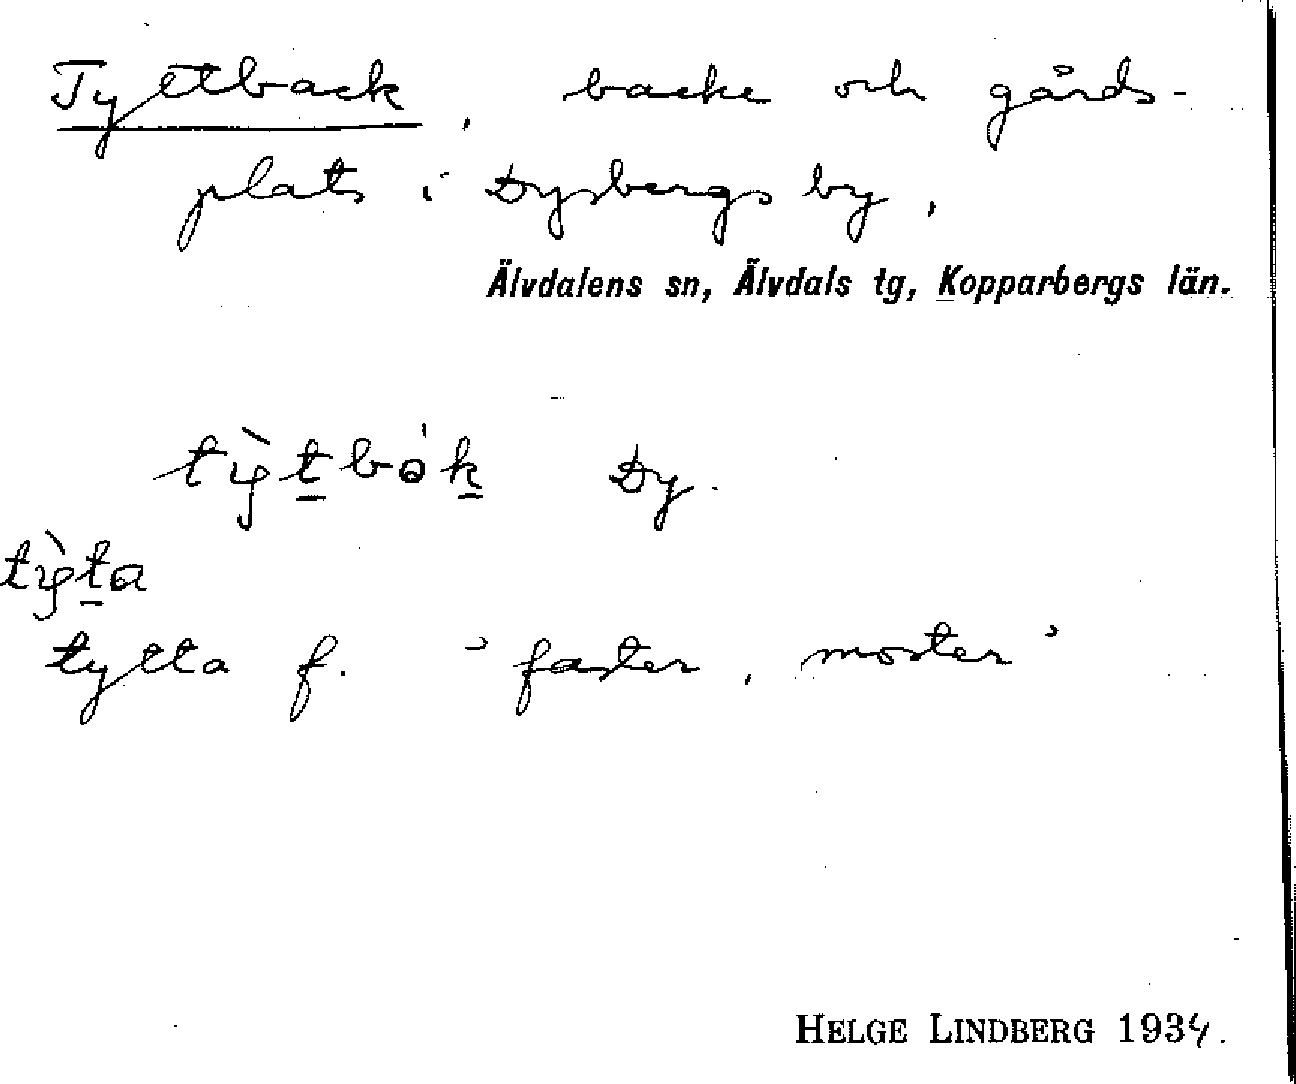 Tyttback, backe och gårds-
plats i Dysbergs by,
Älvdalens sn, Älvdals tg, Kopparbergs län.
tỳt̲bók̲ Dy.
tỳt̲a
tytta f. ’faster, moster’
HELGE LINDBERG 1934.